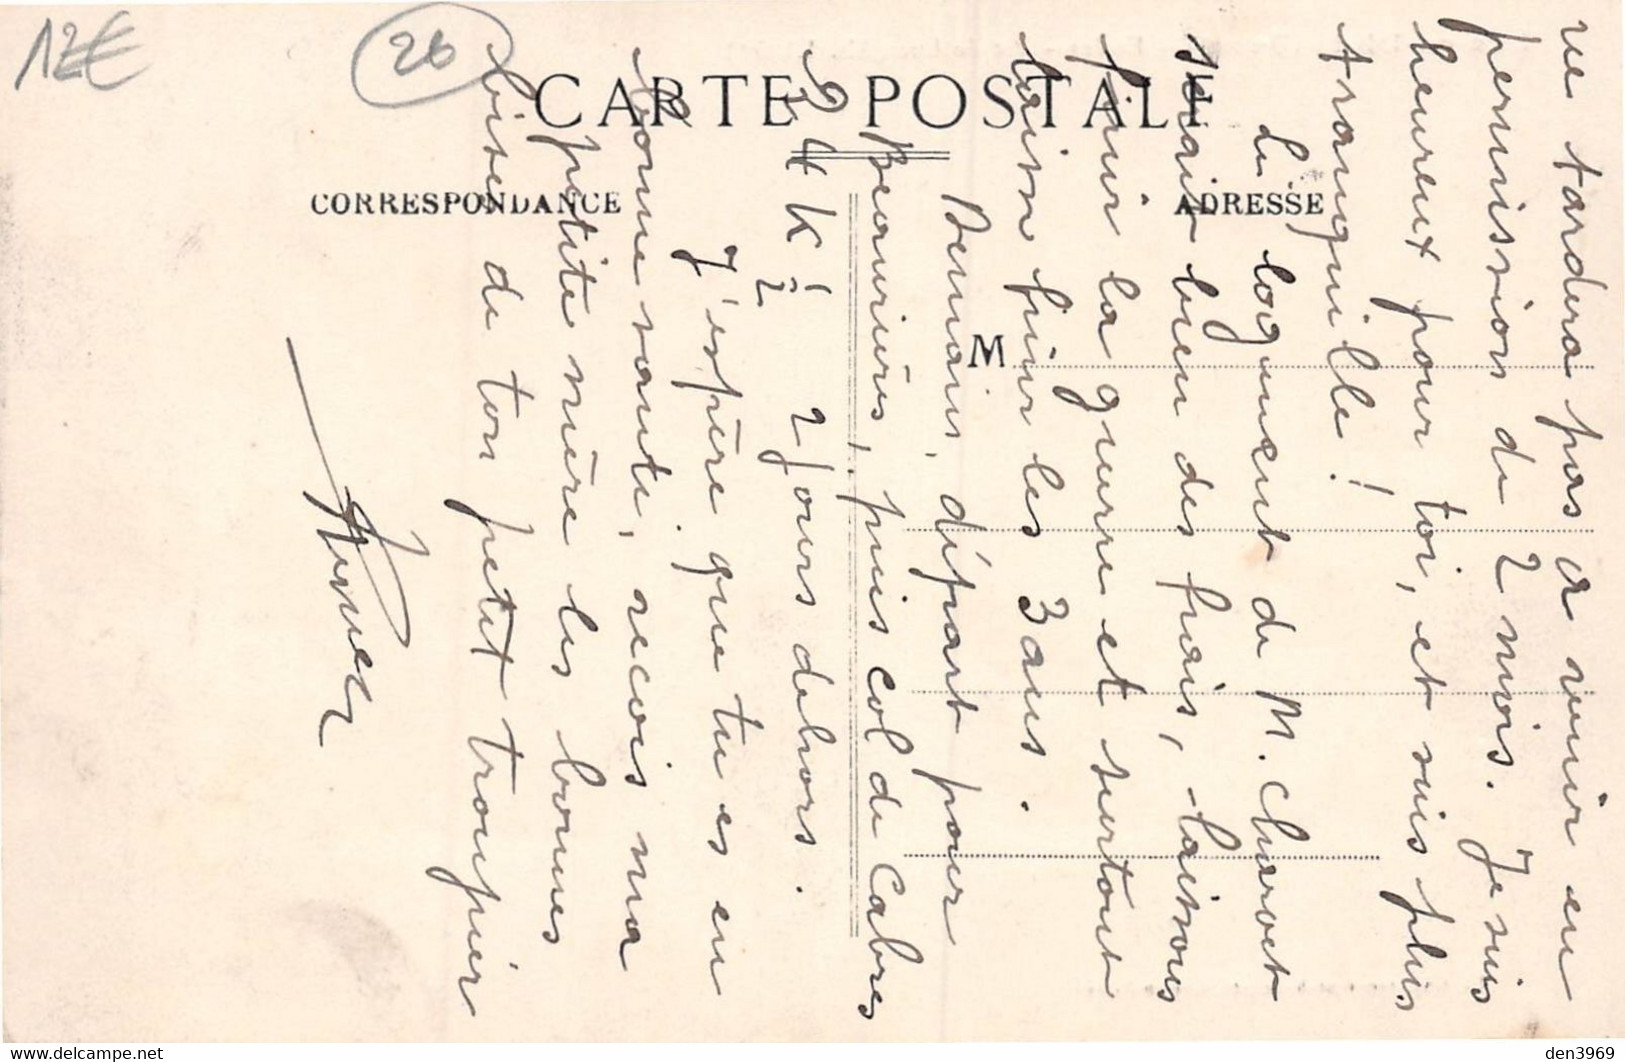 12€
26
CARTE POSTALE
CORRESPONDANCE
ADRESSE
M
ne tardera pas à venir en
permission de 2 mois. Je suis
heureux pour toi, et suis plus
tranquille !
Le logement de M. Charvet
serait bien des frais, laissons
finir la guerre et surtout
laisse finir les 3 ans.
Demain, départ pour
Beaurières, puis col de Cabres
24 K. 2 jours dehors.
J'espère que tu es en
bonne santé, reçois ma
petite mère les bonnes
bises de ton petit troupier
den3969